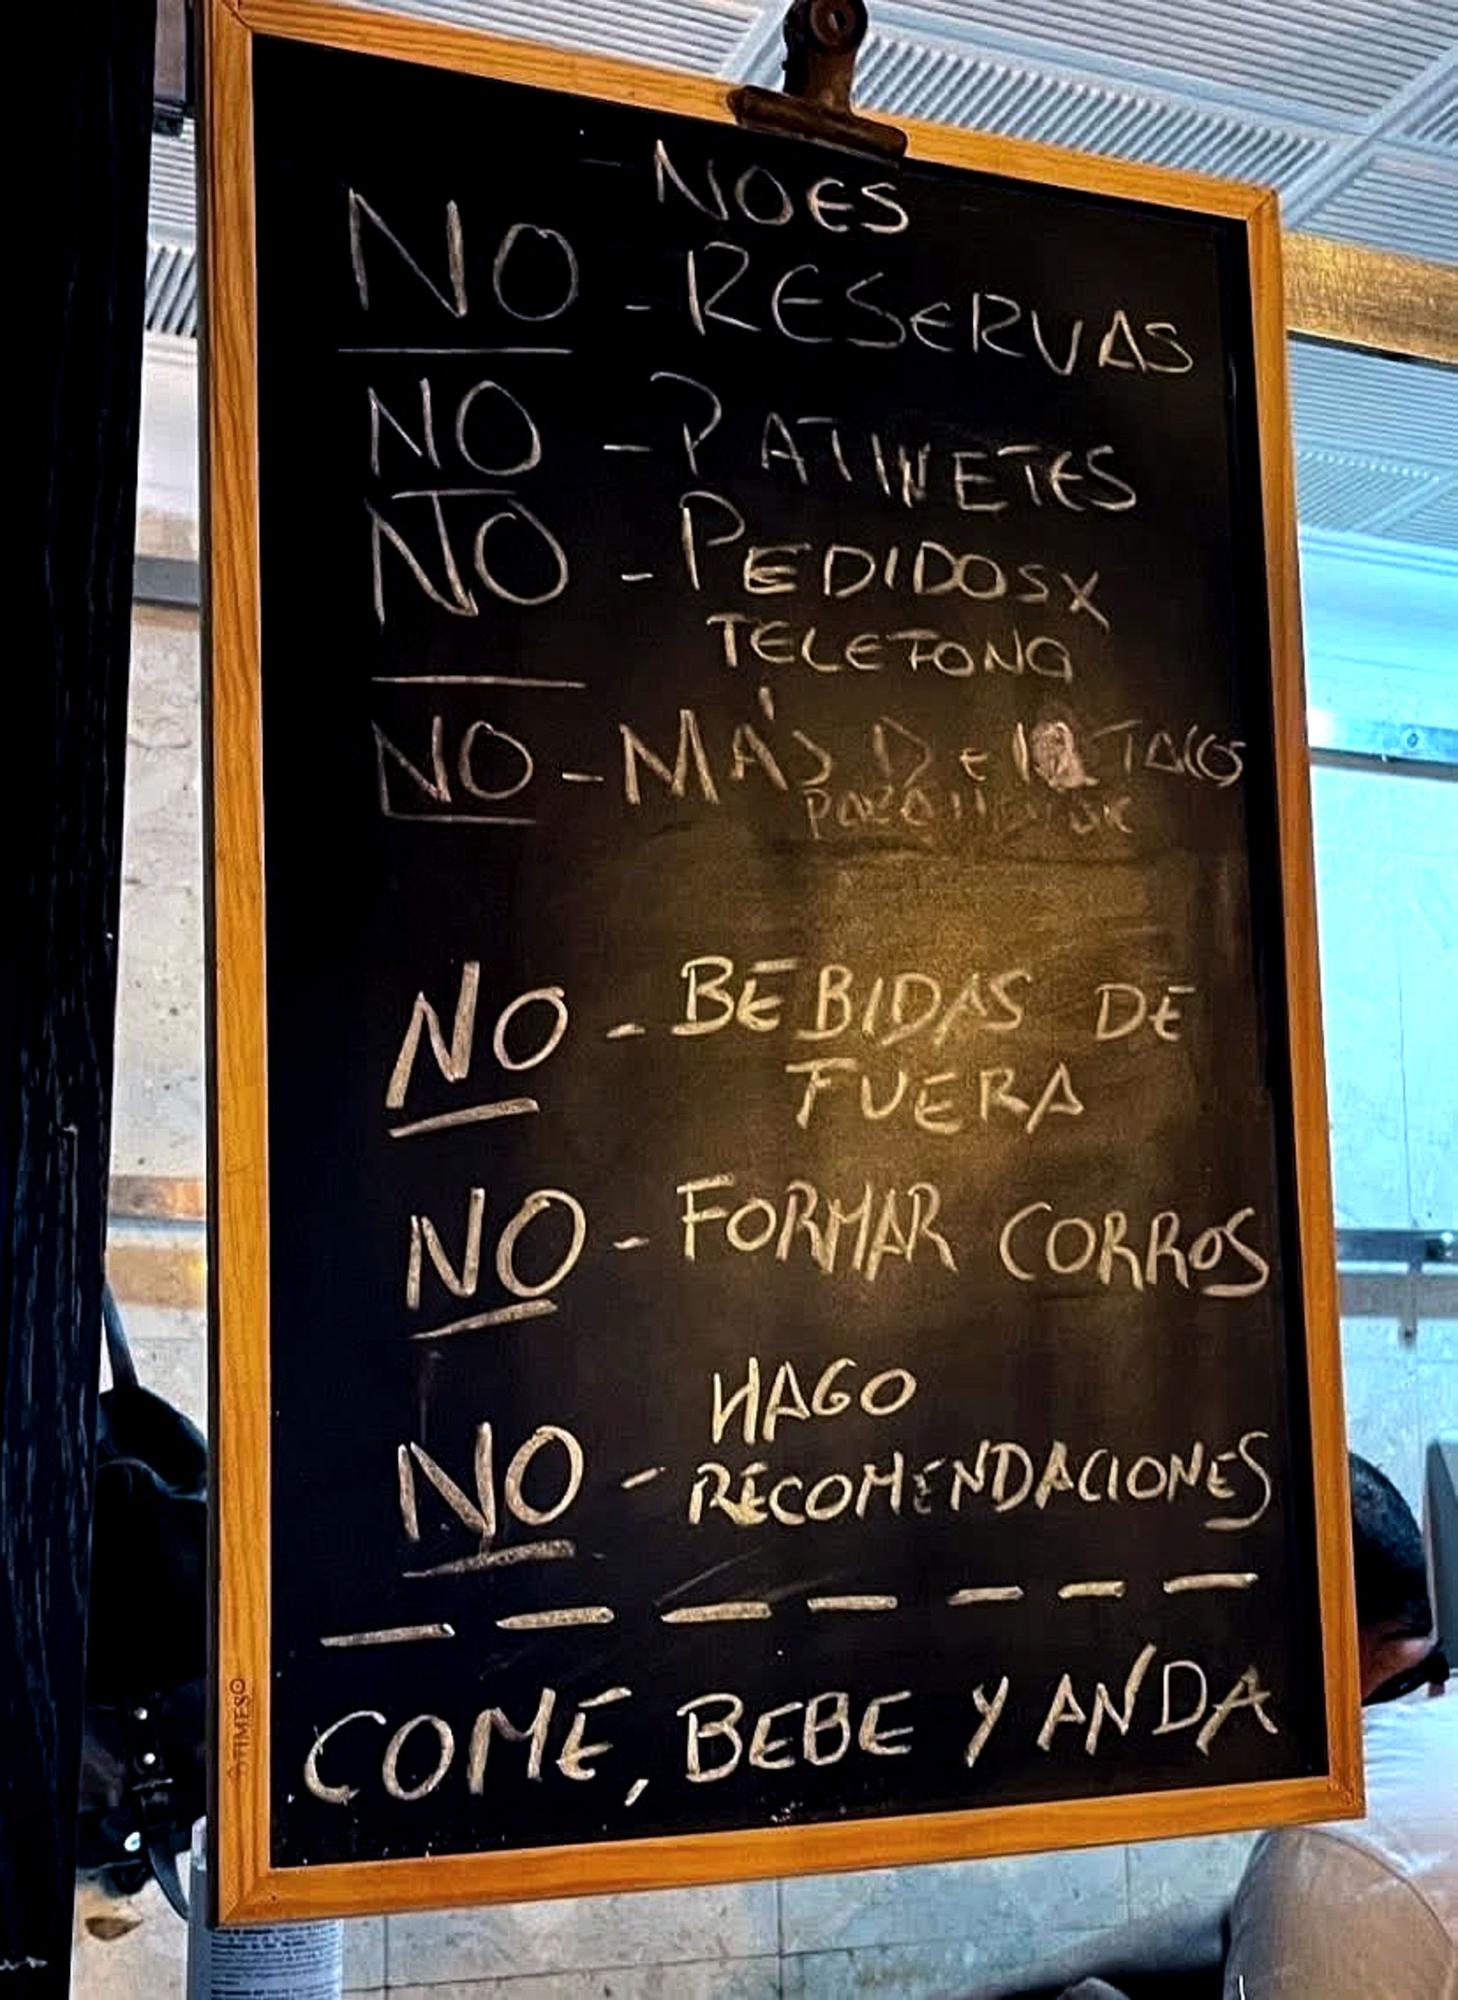 NOES
NO - RESERVAS
NO - PATINETES
NO - PEDIDOS X
TELEFONO
NO - MÁS DE TACOS
NO - BEBIDAS DE
FUERA
NO - FORMAR CORROS
HAGO
NO - RECOMENDACIONES
COME, BEBE Y ANDA